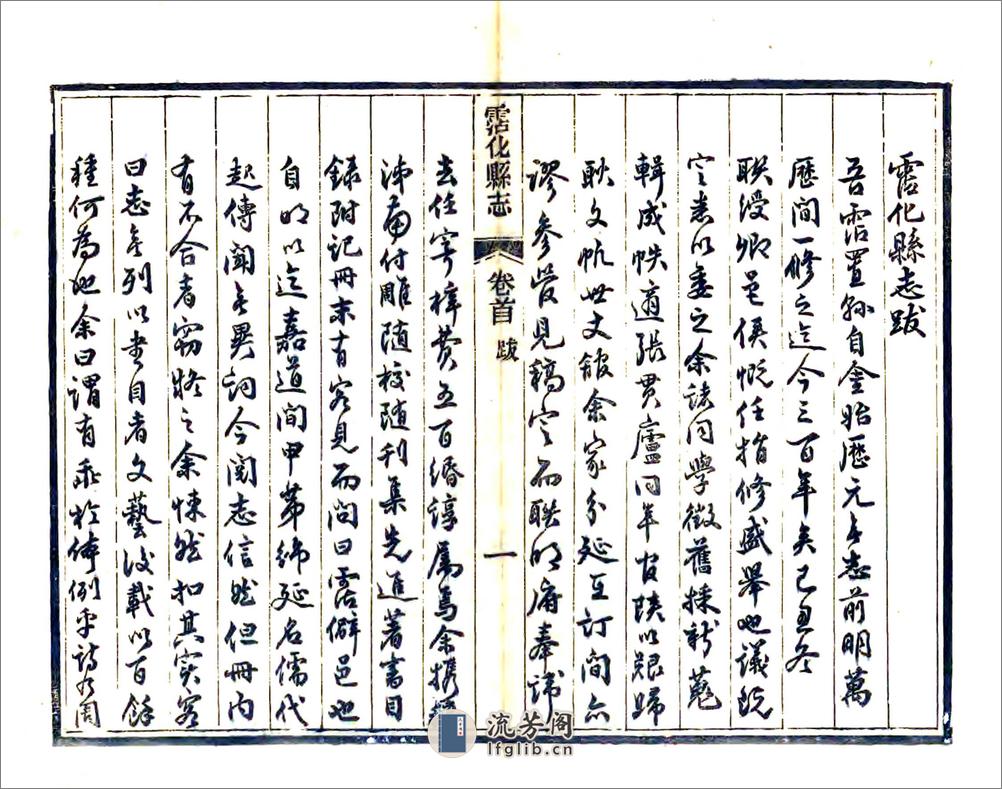 霑化縣志跋
吾霑置縣自金始歷元無志前明萬
歷間一修之迄今三百年矣己丑冬
联綬卿邑侯慨任捐修盛舉也議既
定悉以委之余諸同學徵舊採新蒐
輯成帙適張貫廬同年官陝以艱歸
耿文帆世丈館余家分延互訂間亦
謬參管見稿定而联明府奉諱
霑化縣志 卷首 跋 一
去任寄梓費五百緡諄屬焉余携稿
泲南付雕随校随刊集先進著書目
錄附記冊末有客見而问曰霑僻邑也
自明以迄嘉道間甲第綿延名儒代
起傳聞無異詞今閱志信然但冊内
有不合者竊之余悚然扣其实客
曰志無列以書目者文藝後載以百餘
種何為也余曰謂有乖於体例乎詩如周
流芳阁
lfglib.cn